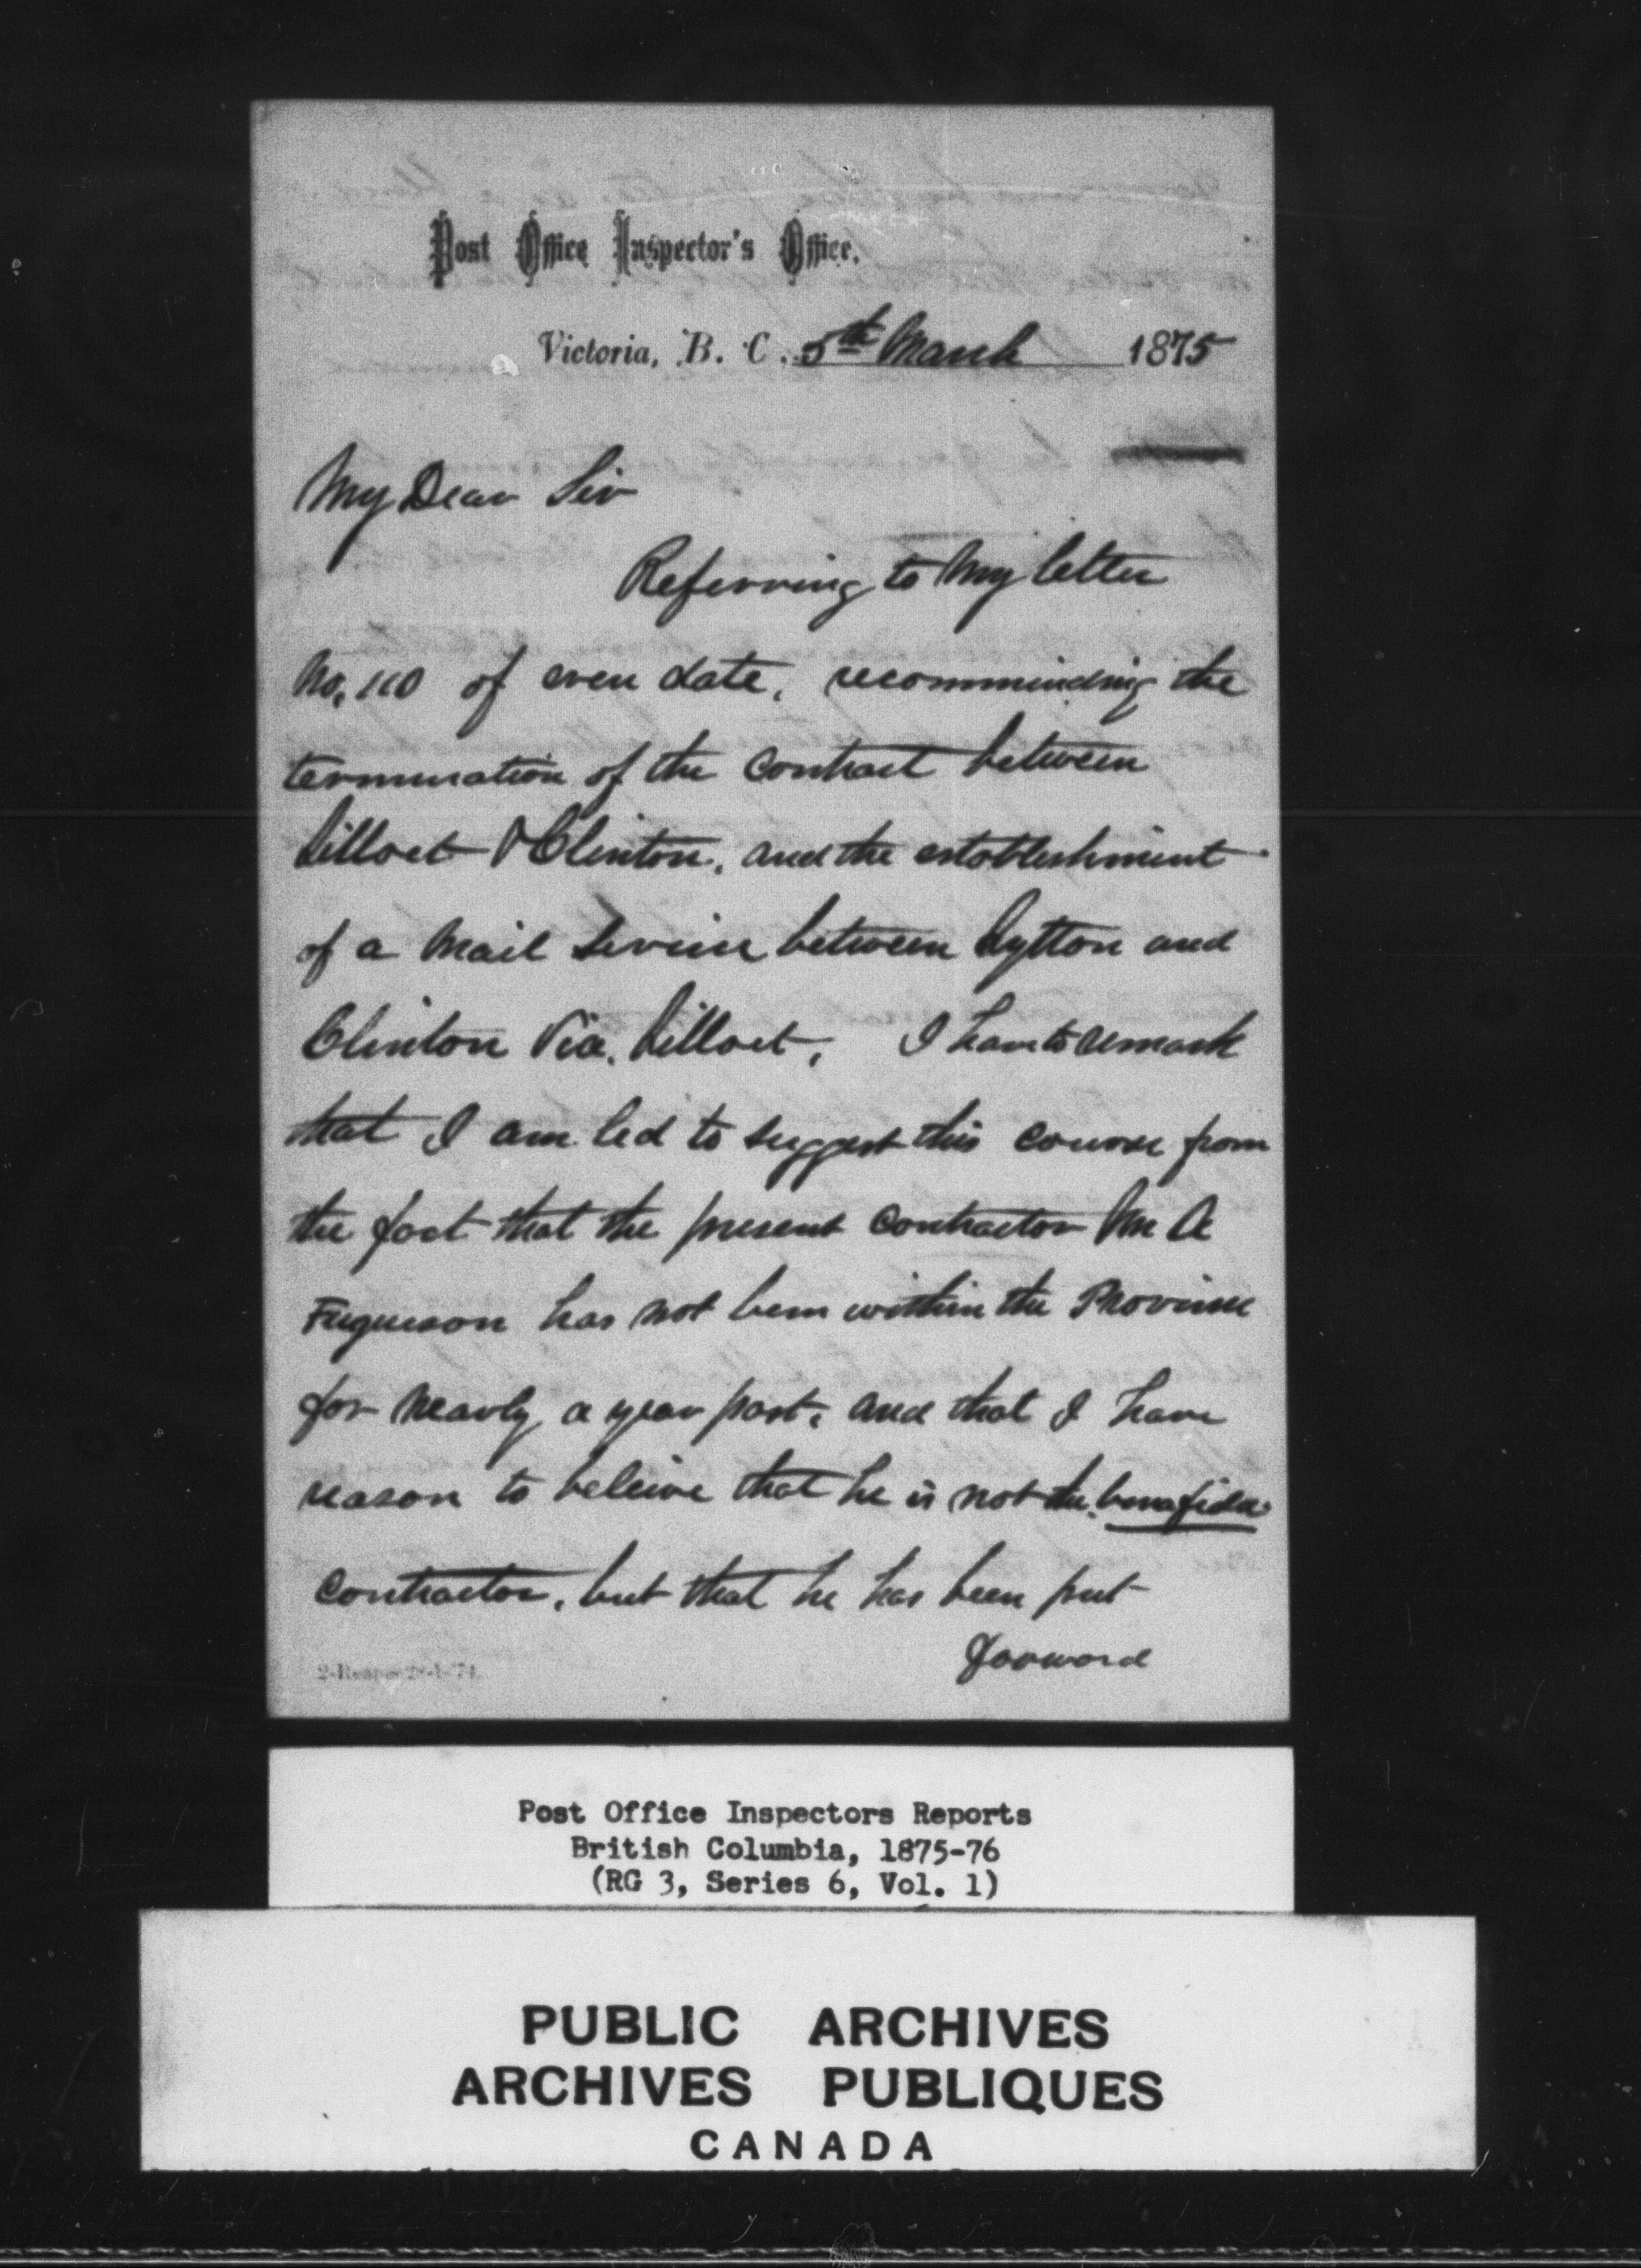 Post Office Inspector's Office,
Victoria, B. C. 5th March 1875
My Dear Sir
Referring to my letter
No. 110 of even date, recommending the
termination of the Contract between
Lilloet & Clinton, and the establishment
of a Mail Service between Lytton and
Clinton Via. Lilloet, I have to remark
that I am led to suggest this course from
the fact that the present Contractor Mr A
Ferguson has not been within the Province
for nearly a year past, and that I have
reason to beleive that he is not the bona fide
Contractor, but that he has been put
forward
Post Office Inspectors Reports
British Columbia, 1875-76
(RG 3, Series 6, Vol. 1)
PUBLIC ARCHIVES
ARCHIVES PUBLIQUES
CANADA